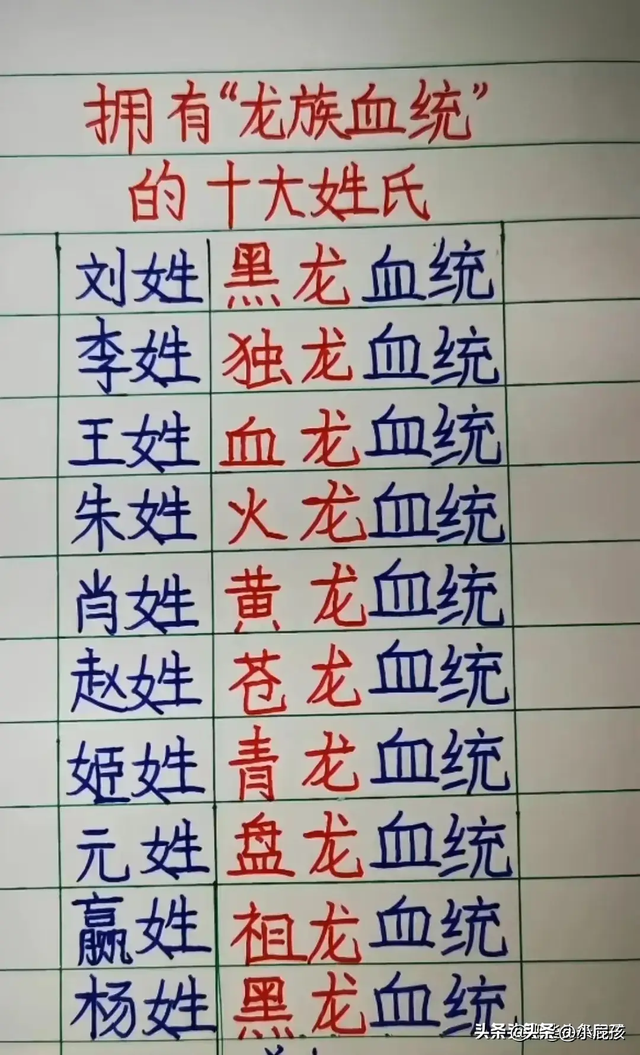 拥有“龙族血统”
的十大姓氏
刘姓 黑龙血统
李姓 独龙血统
王姓 血龙血统
朱姓 火龙血统
肖姓 黄龙血统
赵姓 苍龙血统
姬姓 青龙血统
元姓 盘龙血统
赢姓 祖龙血统
杨姓 黑龙血统